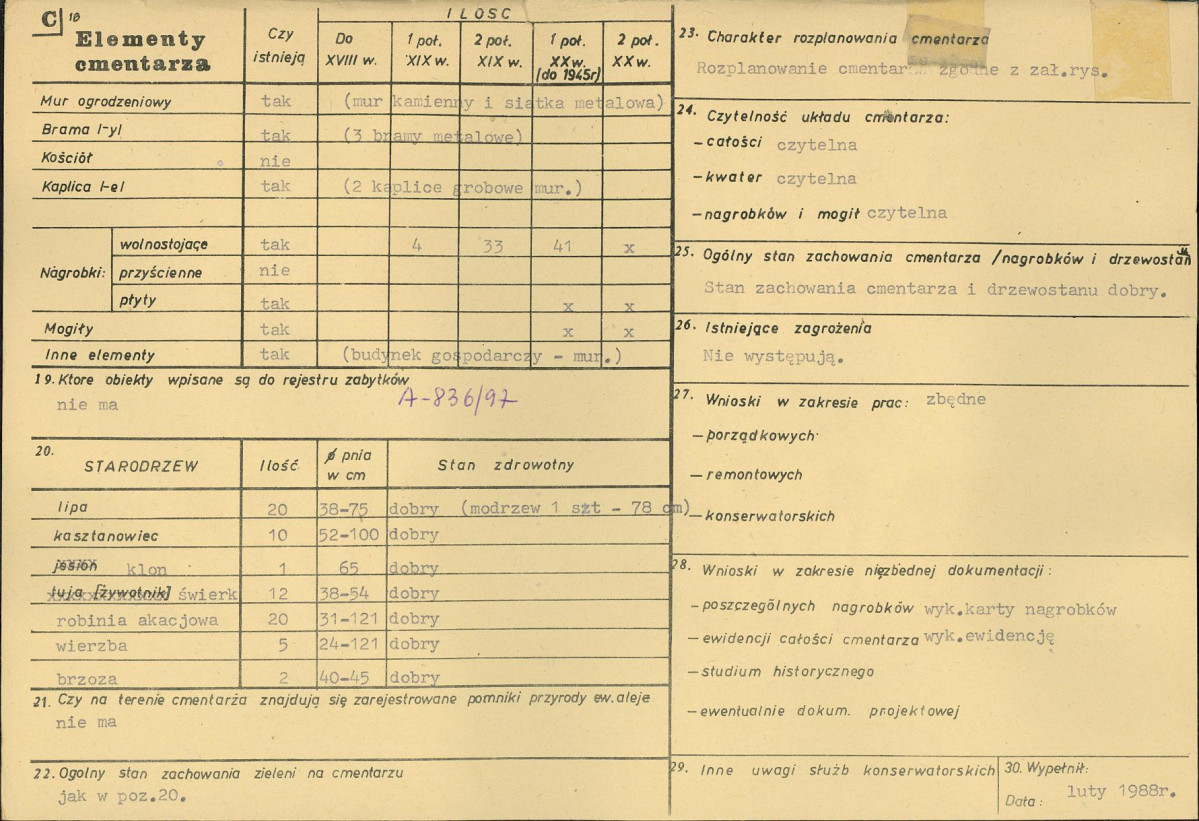 C 18
Elementy cmentarza
Czy istnieją
ILOSC
Do XVIII w.
1 poł. XIX w.
2 poł. XIX w.
1 poł. XX w. (do 1945r)
2 poł. XX w.
Mur ogrodzeniowy tak (mur kamienny i siatka metalowa)
Brama /-y/ tak (3 bramy metalowe)
Kościół nie
Kaplica /-e/ tak (2 kaplice grobowe mur.)
Nagrobki:
wolnostojące tak 4 33 41 x
przyścienne nie
płyty tak x x
Mogiły tak x x
Inne elementy tak (budynek gospodarczy - mur.)
19. Ktore obiekty wpisane są do rejestru zabytków
nie ma A-836/97
20. STARODRZEW Ilość ø pnia w cm Stan zdrowotny
lipa 20 38-75 dobry (modrzew 1 szt - 78 cm)
kasztanowiec 10 52-100 dobry
jesion klon 1 65 dobry
tuja [żywotnik] świerk 12 38-54 dobry
robinia akacjowa 20 31-121 dobry
wierzba 5 24-121 dobry
brzoza 2 40-45 dobry
21. Czy na terenie cmentarza znajdują się zarejestrowane pomniki przyrody ew. aleje
nie ma
22. Ogolny stan zachowania zieleni na cmentarzu
jak w poz.20.
23. Charakter rozplanowania cmentarza
Rozplanowanie zgodne z zał.rys.
24. Czytelność układu cmentarza:
- całości czytelna
- kwater czytelna
- nagrobków i mogił czytelna
25. Ogólny stan zachowania cmentarza /nagrobków i drzewostan
Stan zachowania cmentarza i drzewostanu dobry.
26. Istniejące zagrożenia
Nie występują.
27. Wnioski w zakresie prac: zbędne
- porządkowych
- remontowych
- konserwatorskich
28. Wnioski w zakresie niezbednej dokumentacji:
- poszczególnych nagrobków wyk.karty nagrobków
- ewidencji całości cmentarza wyk.ewidencję
- studium historycznego
- ewentualnie dokum. projektowej
29. Inne uwagi służb konserwatorskich
30. Wypełnił:
Data: luty 1988r.